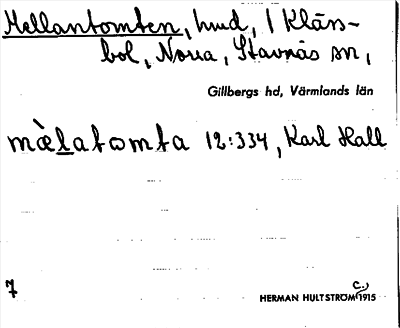 Mellantomten, hmd, 1 Kläss-
bol, Norra, Stavnäs sn,
Gillbergs hd, Värmlands län
mæ̀latomta 12:334, Karl Hall
7
HERMAN HULTSTRÖM C.) 1915